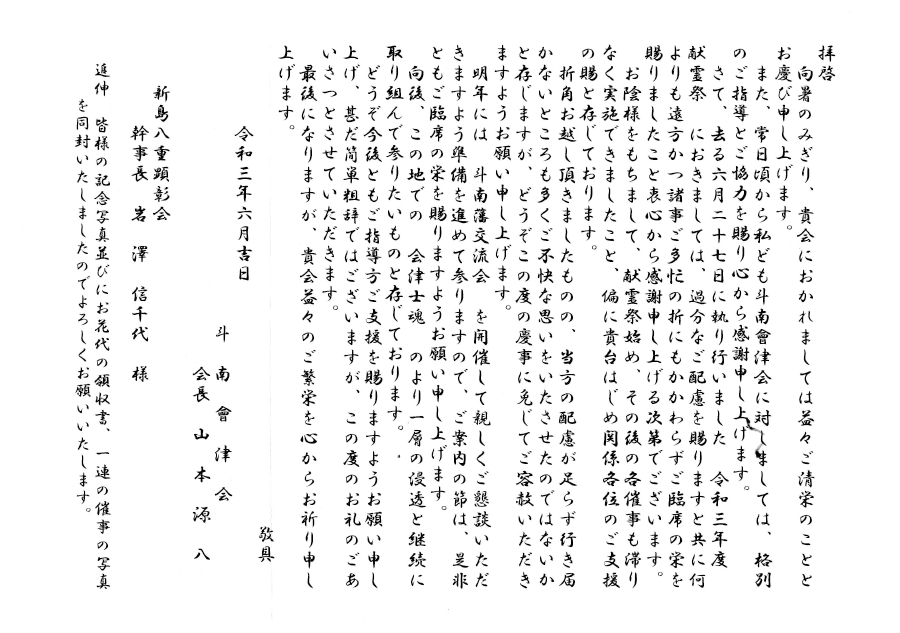 拝啓
向暑のみぎり、貴会におかれましては益々ご清栄のことと
お慶び申し上げます。
また、常日頃から私ども斗南會津会に対しましては、格別
のご指導とご協力を賜り心から感謝申し上げます。
さて、去る六月二十七日に執り行いました 令和三年度
献霊祭 におきましては、過分なご配慮を賜りますと共に何
よりも遠方かつ諸事ご多忙の折にもかかわらずご臨席の栄を
賜りましたこと衷心から感謝申し上げる次第でございます。
お陰様をもちまして、献霊祭始め、その後の各催事も滞り
なく実施できましたこと、偏に貴台はじめ関係各位のご支援
の賜と存じております。
折角お越し頂きましたものの、当方の配慮が足らず行き届
かないところも多くご不快な思いをいたさせたのではないか
と存じますが、どうぞこの度の慶事に免じてご容赦いただき
ますようお願い申し上げます。
明年には 斗南藩交流会 を開催して親しくご懇談いただ
きますよう準備を進めて参りますので、ご案内の節は、是非
ともご臨席の栄を賜りますようお願い申し上げます。
向後、この地での 会津士魂 のより一層の浸透と継続に
取り組んで参りたいものと存じております。
どうぞ今後ともご指導方ご支援を賜りますようお願い申し
上げ、甚だ簡単粗辞ではございますが、この度のお礼のごあ
いさつとさせていただきます。
最後になりますが、貴会益々のご繁栄を心からお祈り申し
上げます。
敬具
令和三年六月吉日
斗南會津会
会長 山本源八
新島八重顕彰会
幹事長 岩澤 信千代 様
追伸 皆様の記念写真並びにお花代の領収書、一連の催事の写真
を同封いたしましたのでよろしくお願いいたします。